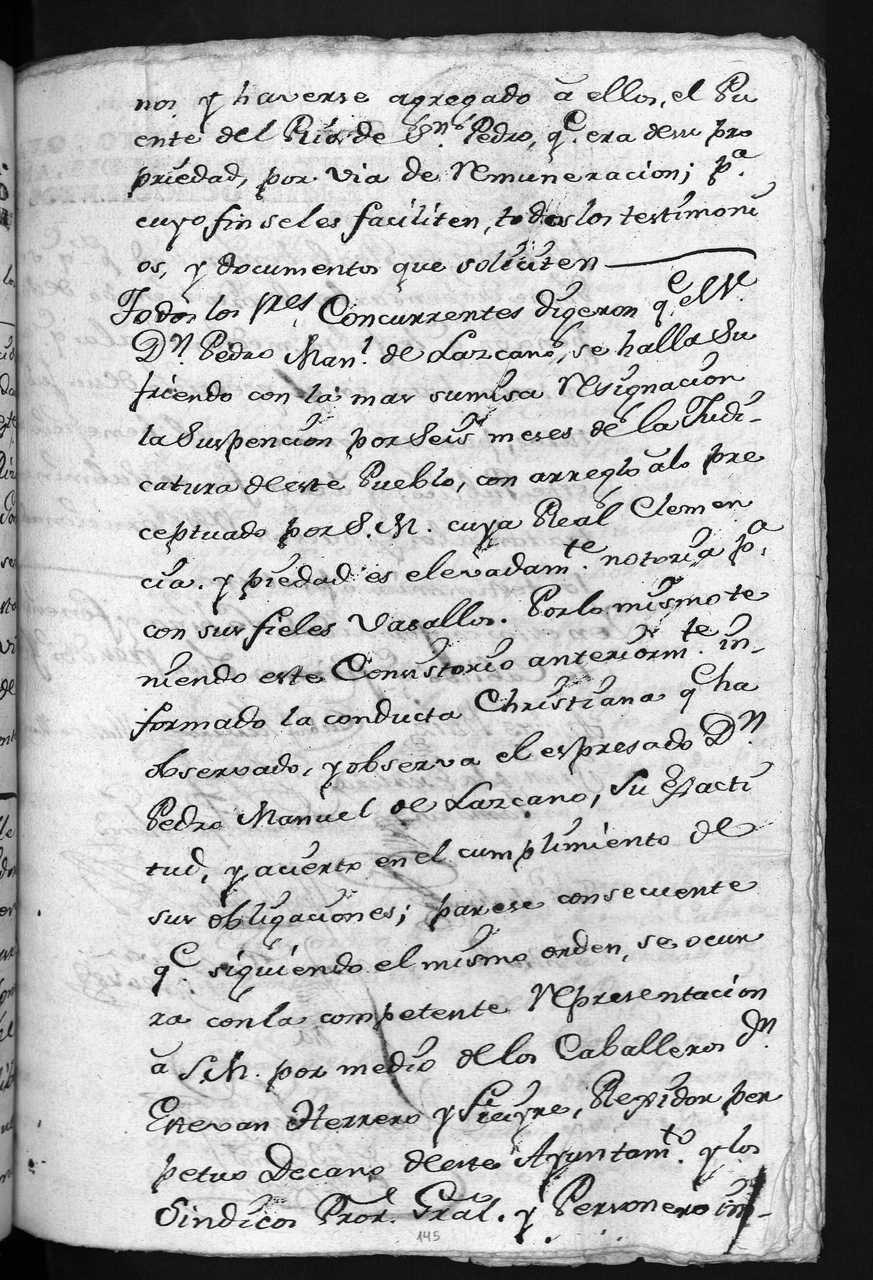 nos y haverse agregado á ellos, el Pu
ente del Rio de Sn. Pedro, qe. era de su pro
priedad, por via de Remuneracion; pa.
cuyo fin se les faciliten, todos los testimoni
os, y documentos que soliciten
Todos los sres. Concurrentes digeron qe. el Sr.
Dn. Pedro Manl. de Lazcano, se halla su
friendo con la mas sumisa Resignacion
la Suspencion por Seis meses de la Judi-
catura de este Pueblo, con arreglo a lo pre
ceptuado por S. M. cuya Real Clemen
cia. y piedad es elevadamte. notoria pa.
con sus fieles Vasallos. Por lo mismo te
niendo este Consistorio anteriormte. in-
formado la conducta Christiana qe. ha
observado, y observa el espresado Dn.
Pedro Manuel de Lazcano, su exacti
tud, y acierto en el cumplimiento de
sus obligaciones; parese consecuente
qe. siguiendo el mismo orden, se ocur
ra con la competente Representacion
á S.M. por medio de los Caballeros Dn.
Estevan Herrero y Sieyre, Regidor per
petuo Decano de este Ayuntamto. y los
Sindicos Pror. Gral. y Personero im-
145